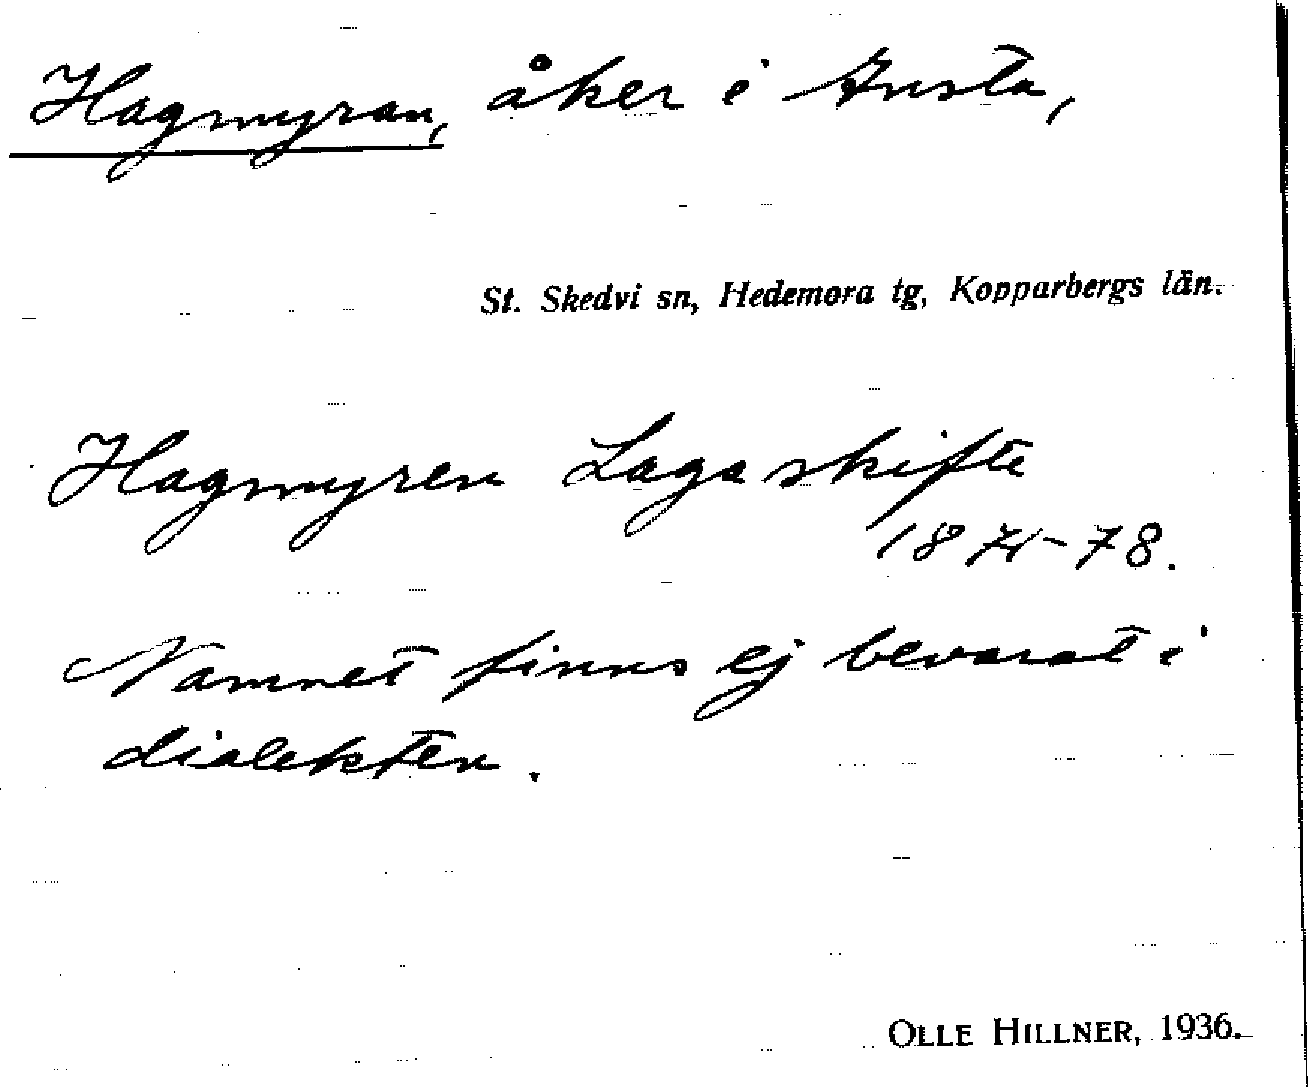 Hagmyran, åker i Gusta,
St. Skedvi sn, Hedemora tg, Kopparbergs län.
Hagmyren Laga skifte
1875-78.
Namnet finns ej bevarat i
dialekten.
OLLE HILLNER, 1936.